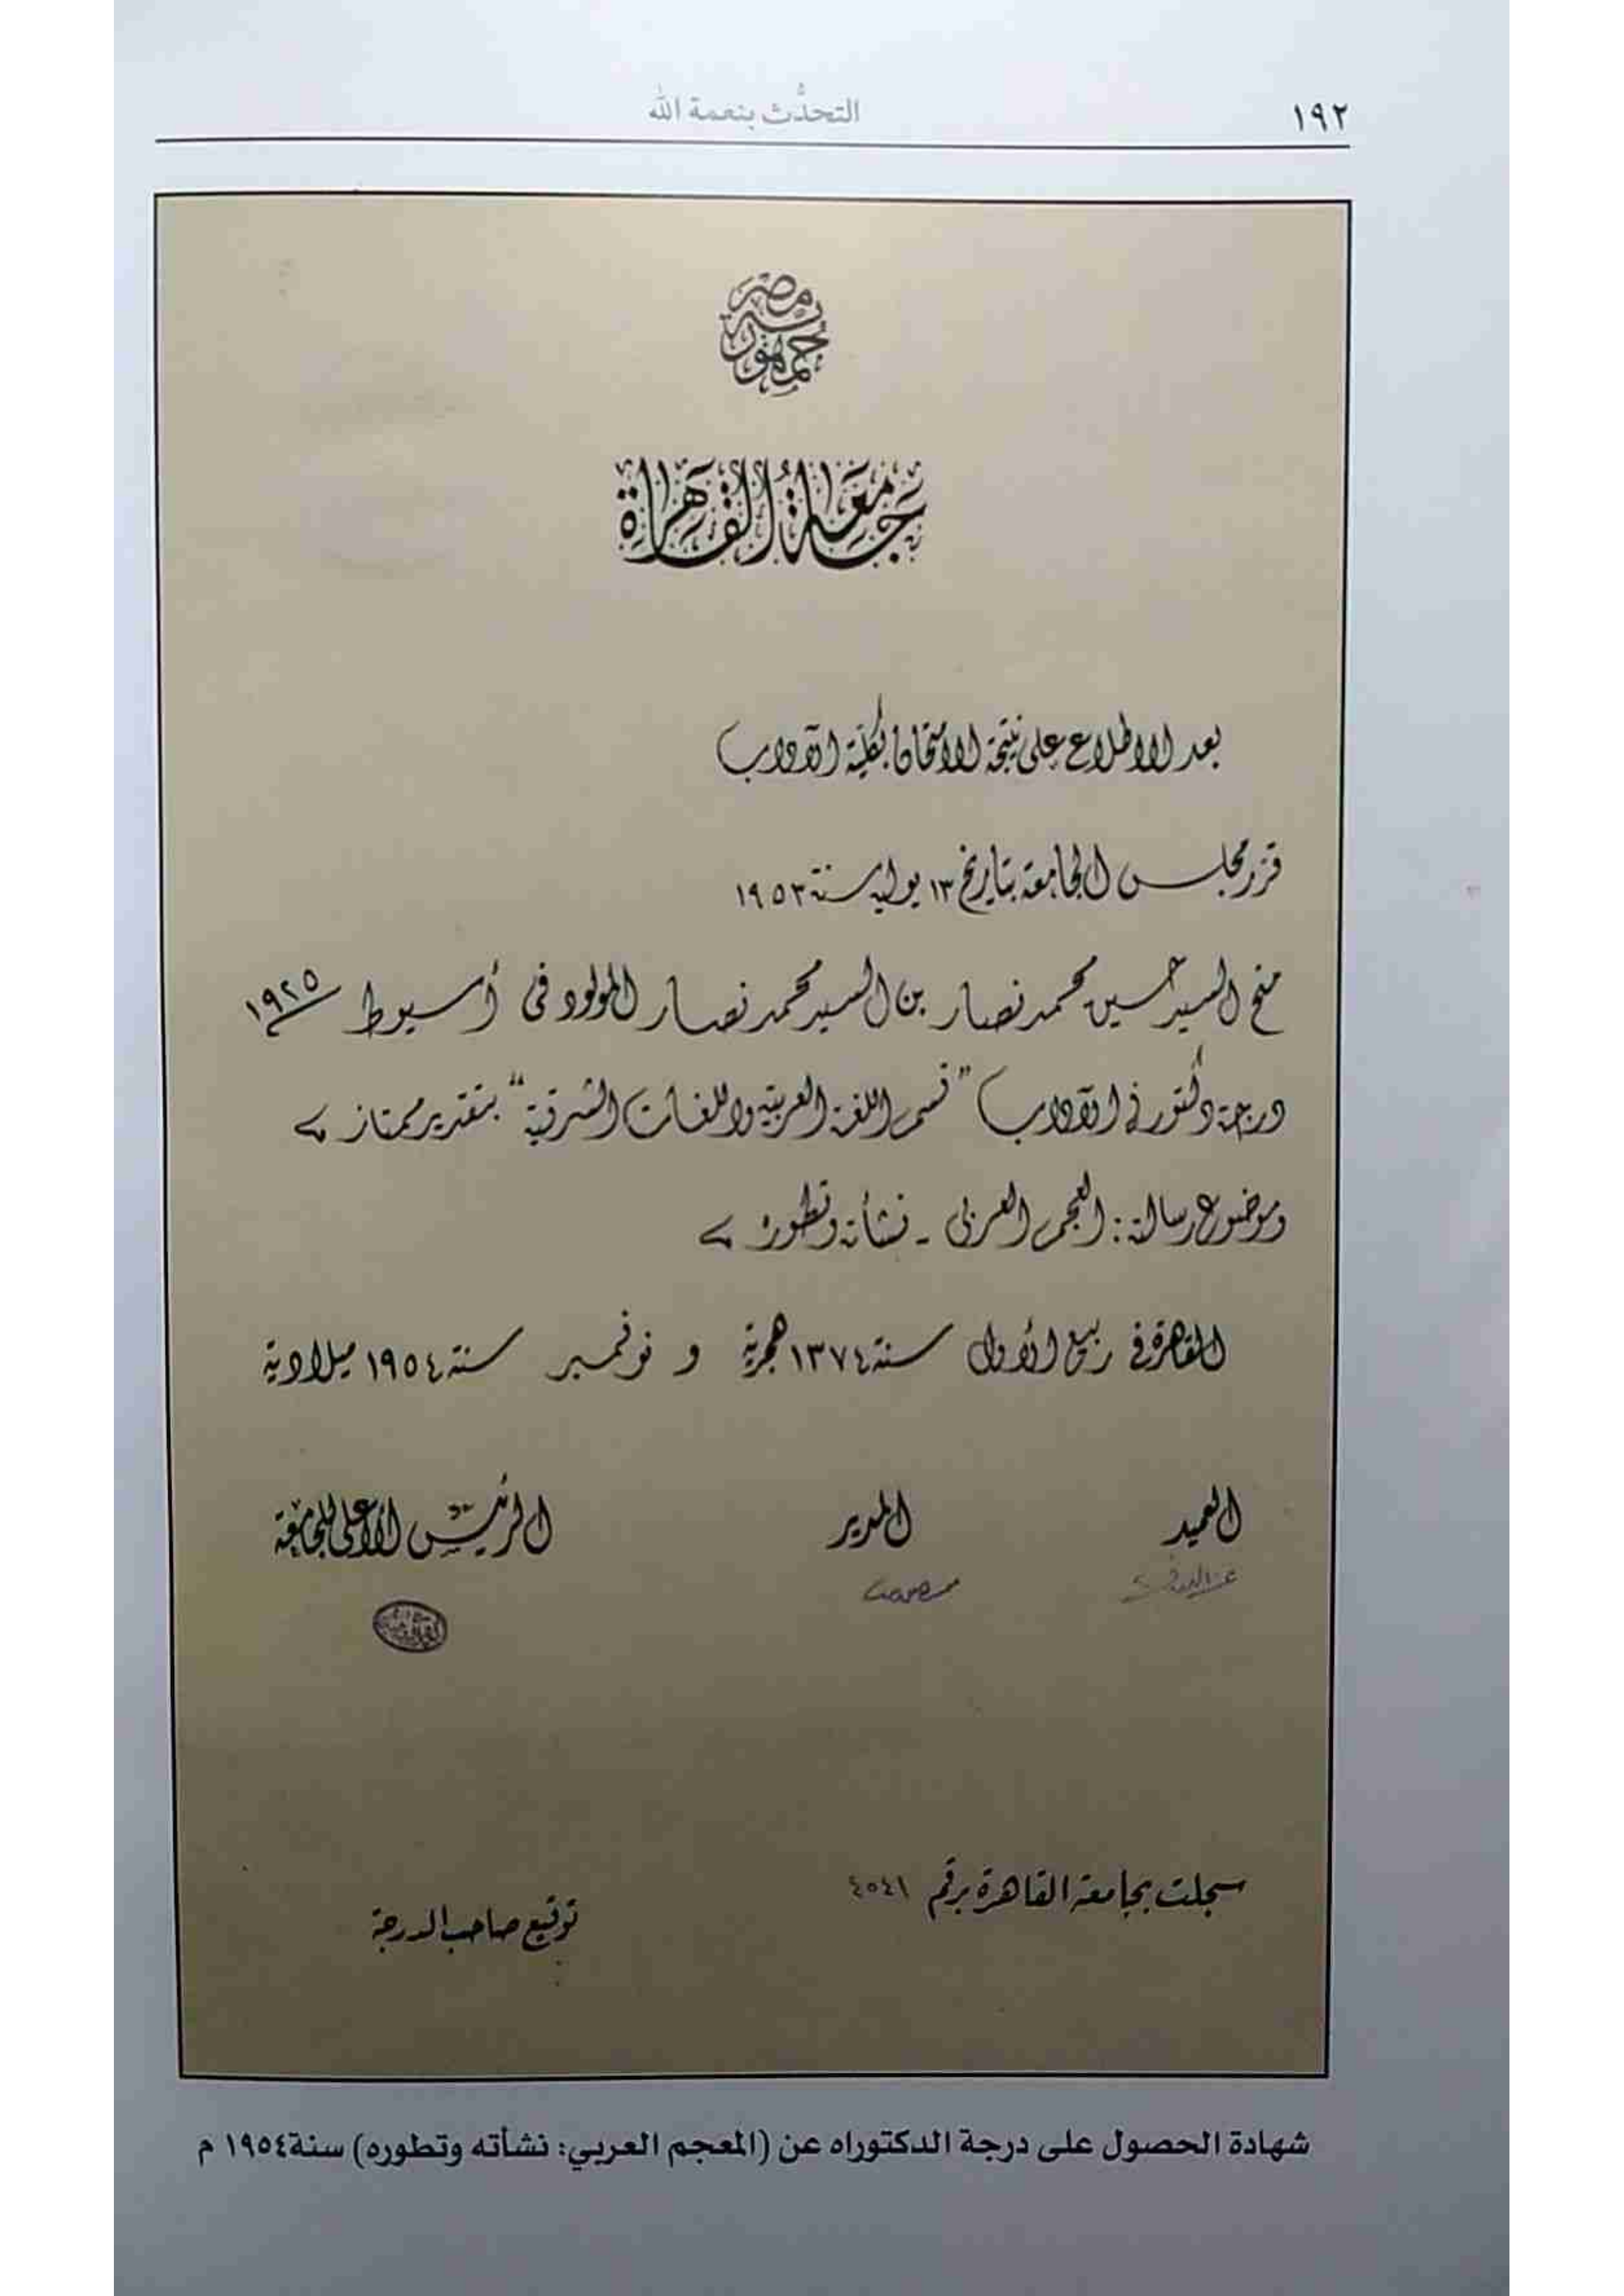 ١٩٢
التحدُّث بنعمة الله
جمهورية مصر
جامعة القاهرة
بعد الاطلاع على نتيجة الامتحان بكلية الآداب
قرر مجلس الجامعة بتاريخ ١٣ يوليه سنة ١٩٥٣
منح السيد حسين محمد نصار بن السيد محمد نصار المولود فى أسيوط ١٩٢٥
درجة دكتور فى الآداب "قسم اللغة العربية واللغات الشرقية" بتقدير ممتاز
وموضوع رسالته: المعجم العربى - نشأته وتطوره
القاهرة فى ربيع الأول سنة ١٣٧٤ هجرية و نوفمبر سنة ١٩٥٤ ميلادية
العميد المدير الرئيس الأعلى للجامعة
سجلت بجامعة القاهرة برقم ٤٥٤١
توقيع صاحب الدرجة
شهادة الحصول على درجة الدكتوراه عن (المعجم العربي: نشأته وتطوره) سنة ١٩٥٤ م